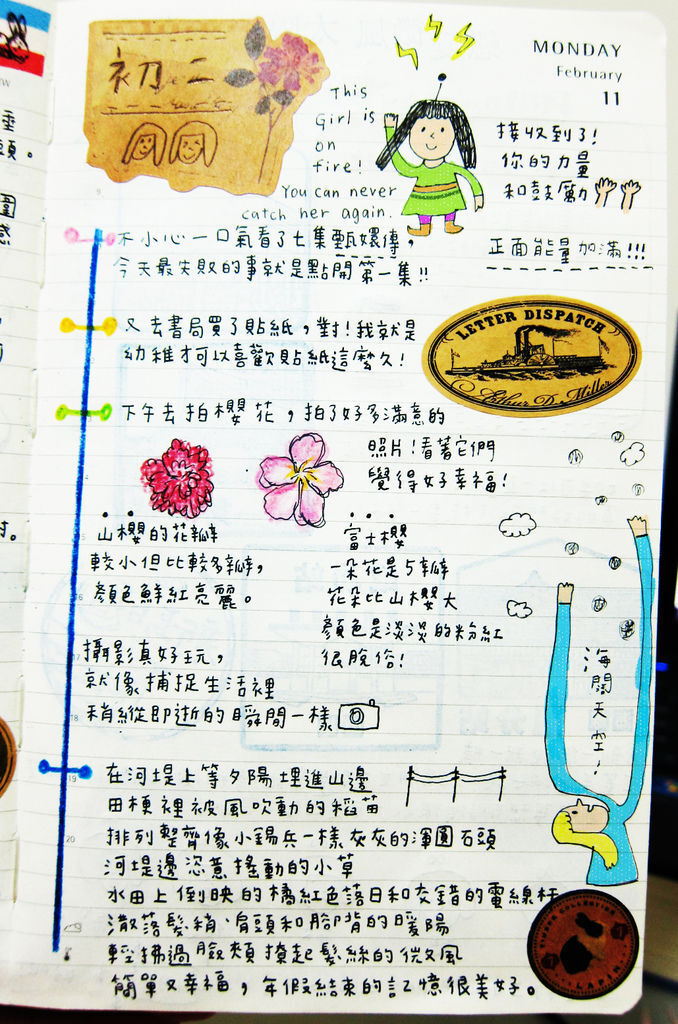 MONDAY
February
11
初二
This
Girl is
on
fire!
You can never
catch her again.
接收到了!
你的力量
和鼓勵
正面能量加滿!!!
不小心一口氣看了七集甄嬛傳,
今天最失敗的事就是點開第一集!!
又去書局買了貼紙,對!我就是
幼稚才可以喜歡貼紙這麼久!
LETTER DISPATCH
Arthur D. Miller
下午去拍櫻花,拍了好多滿意的
照片!看著它們
覺得好幸福!
山櫻的花瓣
較小但比較多瓣,
顏色鮮紅亮麗。
富士櫻
一朵花是5瓣
花朵比山櫻大
顏色是淡淡的粉紅
很脫俗!
攝影真好玩,
就像捕捉生活裡
稍縱即逝的瞬間一樣
海闊天空!
在河堤上等夕陽埋進山邊
田梗裡被風吹動的稻苗
排列整齊像小錫兵一樣灰灰的渾圓石頭
河堤邊恣意搖動的小草
水田上倒映的橘紅色落日和交錯的電線杆
潵落髮稍、肩頭和腳背的暖陽
輕拂過臉頰撩起髮絲的微風
簡單又幸福,年假結束的記憶很美好。
LAPIN